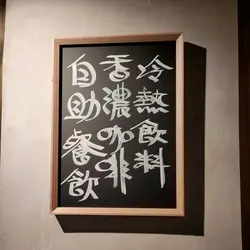 冷熱飲料
香濃咖啡
自助餐飲